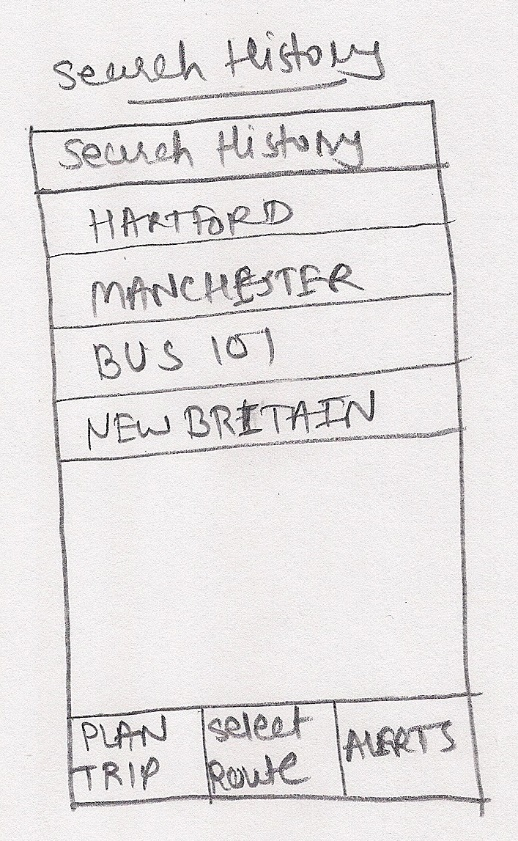 Search History
Search History
HARTFORD
MANCHESTER
BUS 101
NEW BRITAIN
PLAN
TRIP
Select
Route
ALERTS